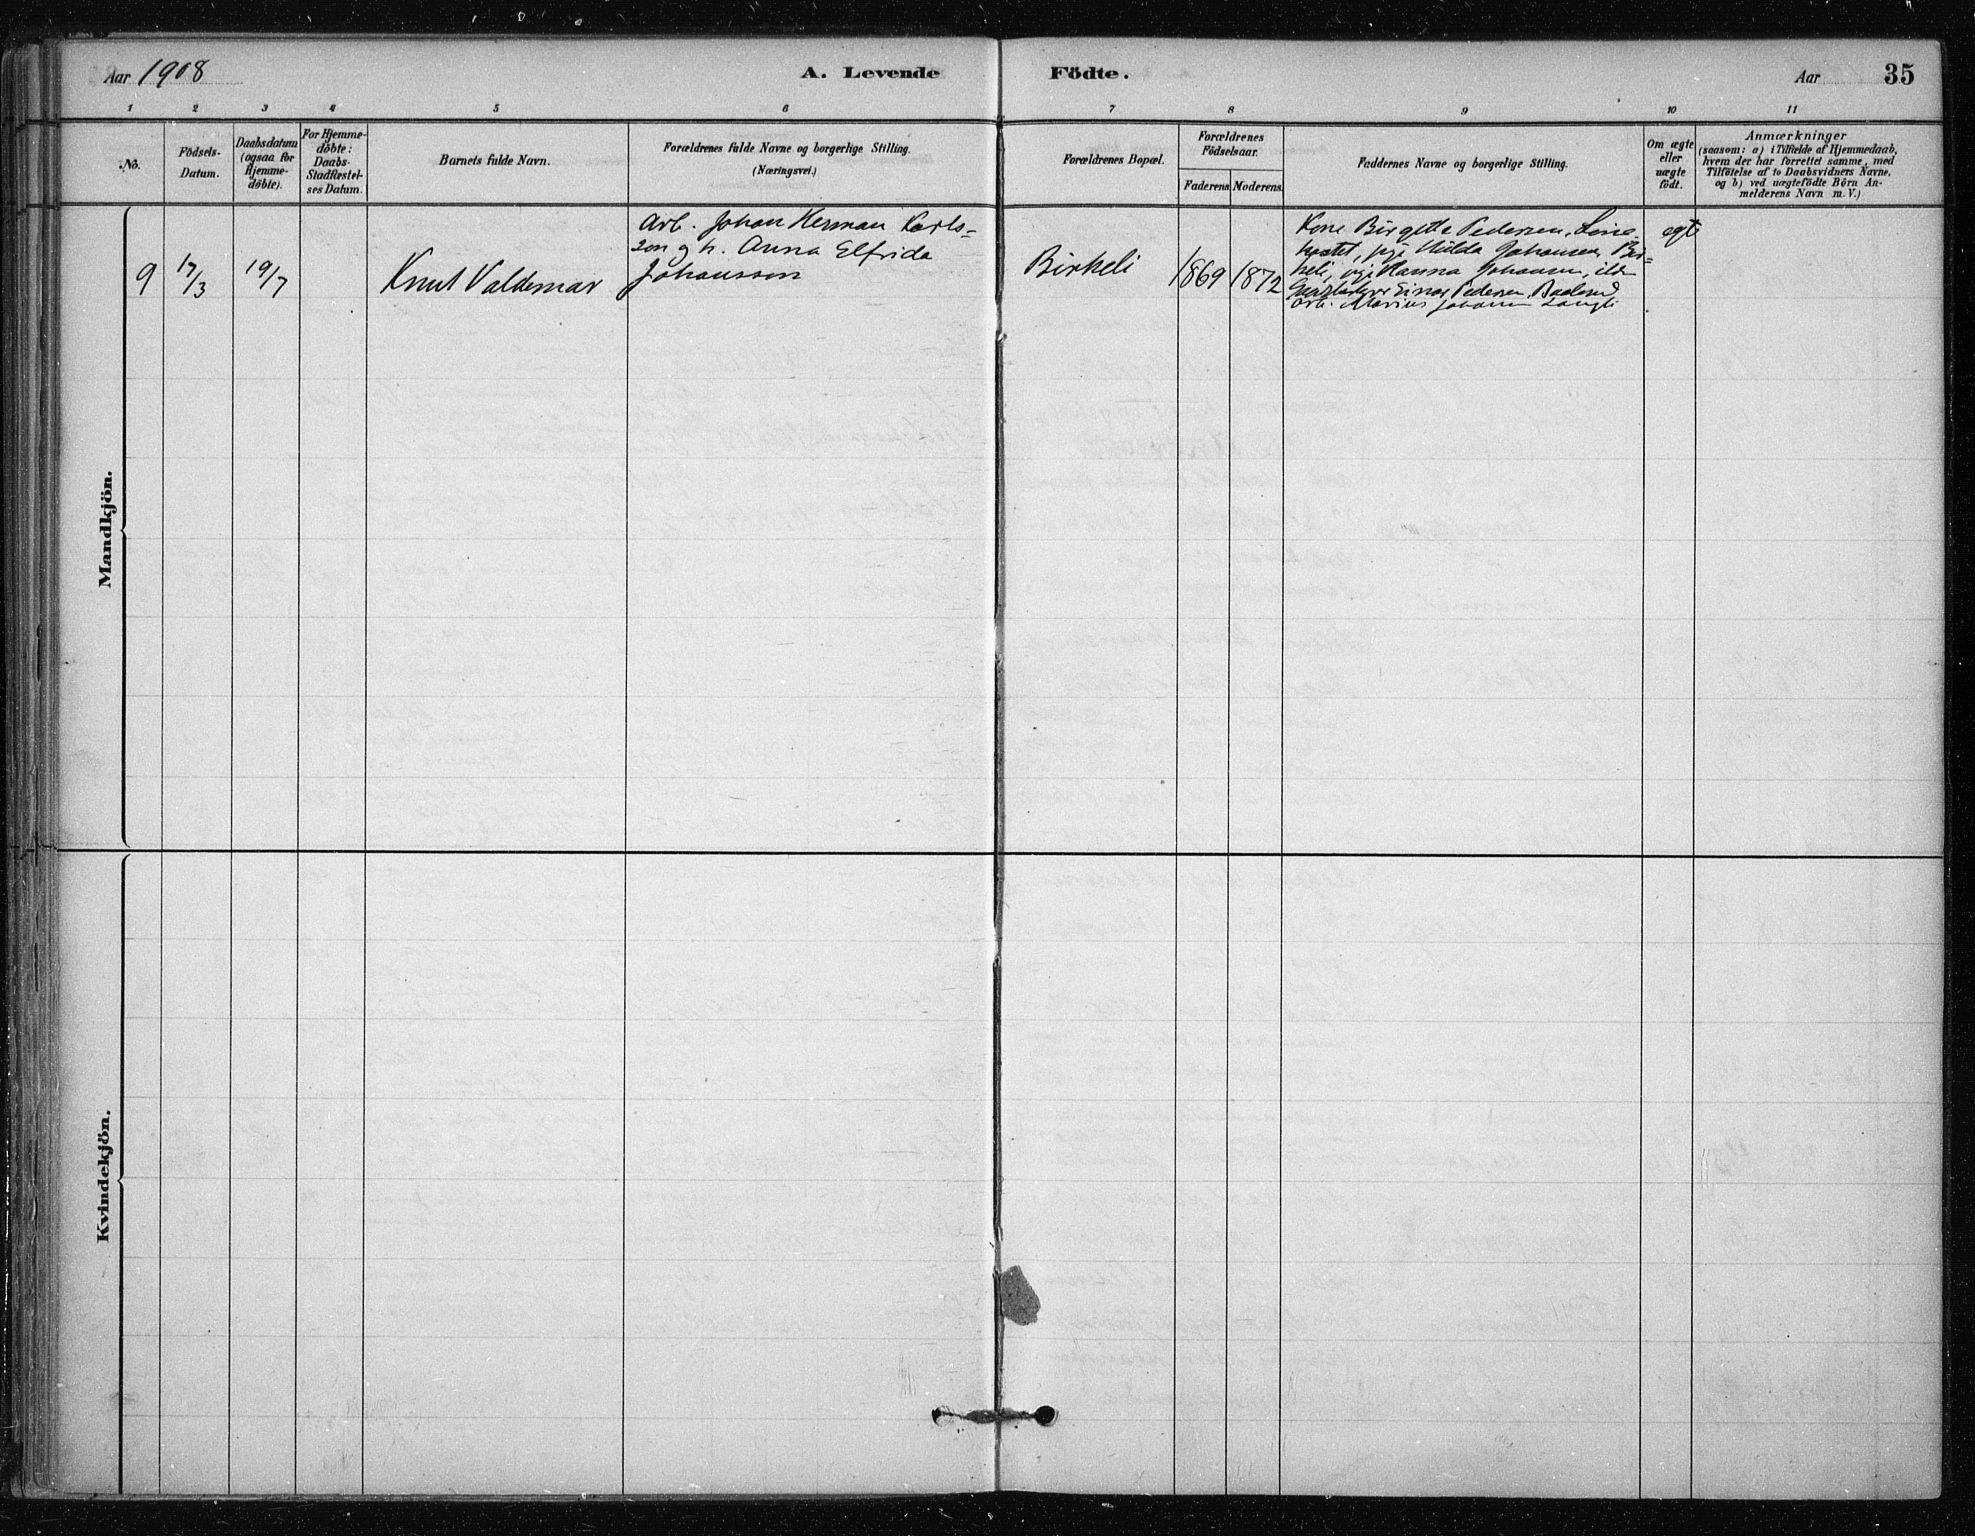 Aar 1908
A. Levende
Födte.
Aar
35
1 2 3 4 5 6 7 8 9 10 11
No.
Födsels-
Datum.
Daabsdatum
(ogsaa for
Hjemme-
döbte).
For Hjemme-
döbte:
Daabs-
Stadfæstel-
ses Datum.
Barnets fulde Navn.
Forældrenes fulde Navne og borgerlige Stilling.
(Næringsvei.)
Forældrenes Bopæl.
Forældrenes
Födselsaar.
Faderens.
Moderens.
Faddernes Navne og borgerlige Stilling.
Om ægte
eller
uægte
födt.
Anmærkninger
(saasom: a) i Tilfælde af Hjemmedaab,
hvem der har forrettet samme, med
Tilföielse af to Daabsvidners Navne,
og b) ved uægtefödte Börn An-
melderens Navn m. V.)
Mandkjön.
9
17/3
19/7
Knut Valdemar
Arb. Johan Herman Karls-
son og h. Anna Elfrida
Johansson
Birkeli
1869
1872
Kone Birgitte Pedersen,
pige Hilda Johansen, Bir-
keli, pige Hanna Johansen,
Einar Pedersen,
arb. Marius Johansen
egt
Kvindekjön.